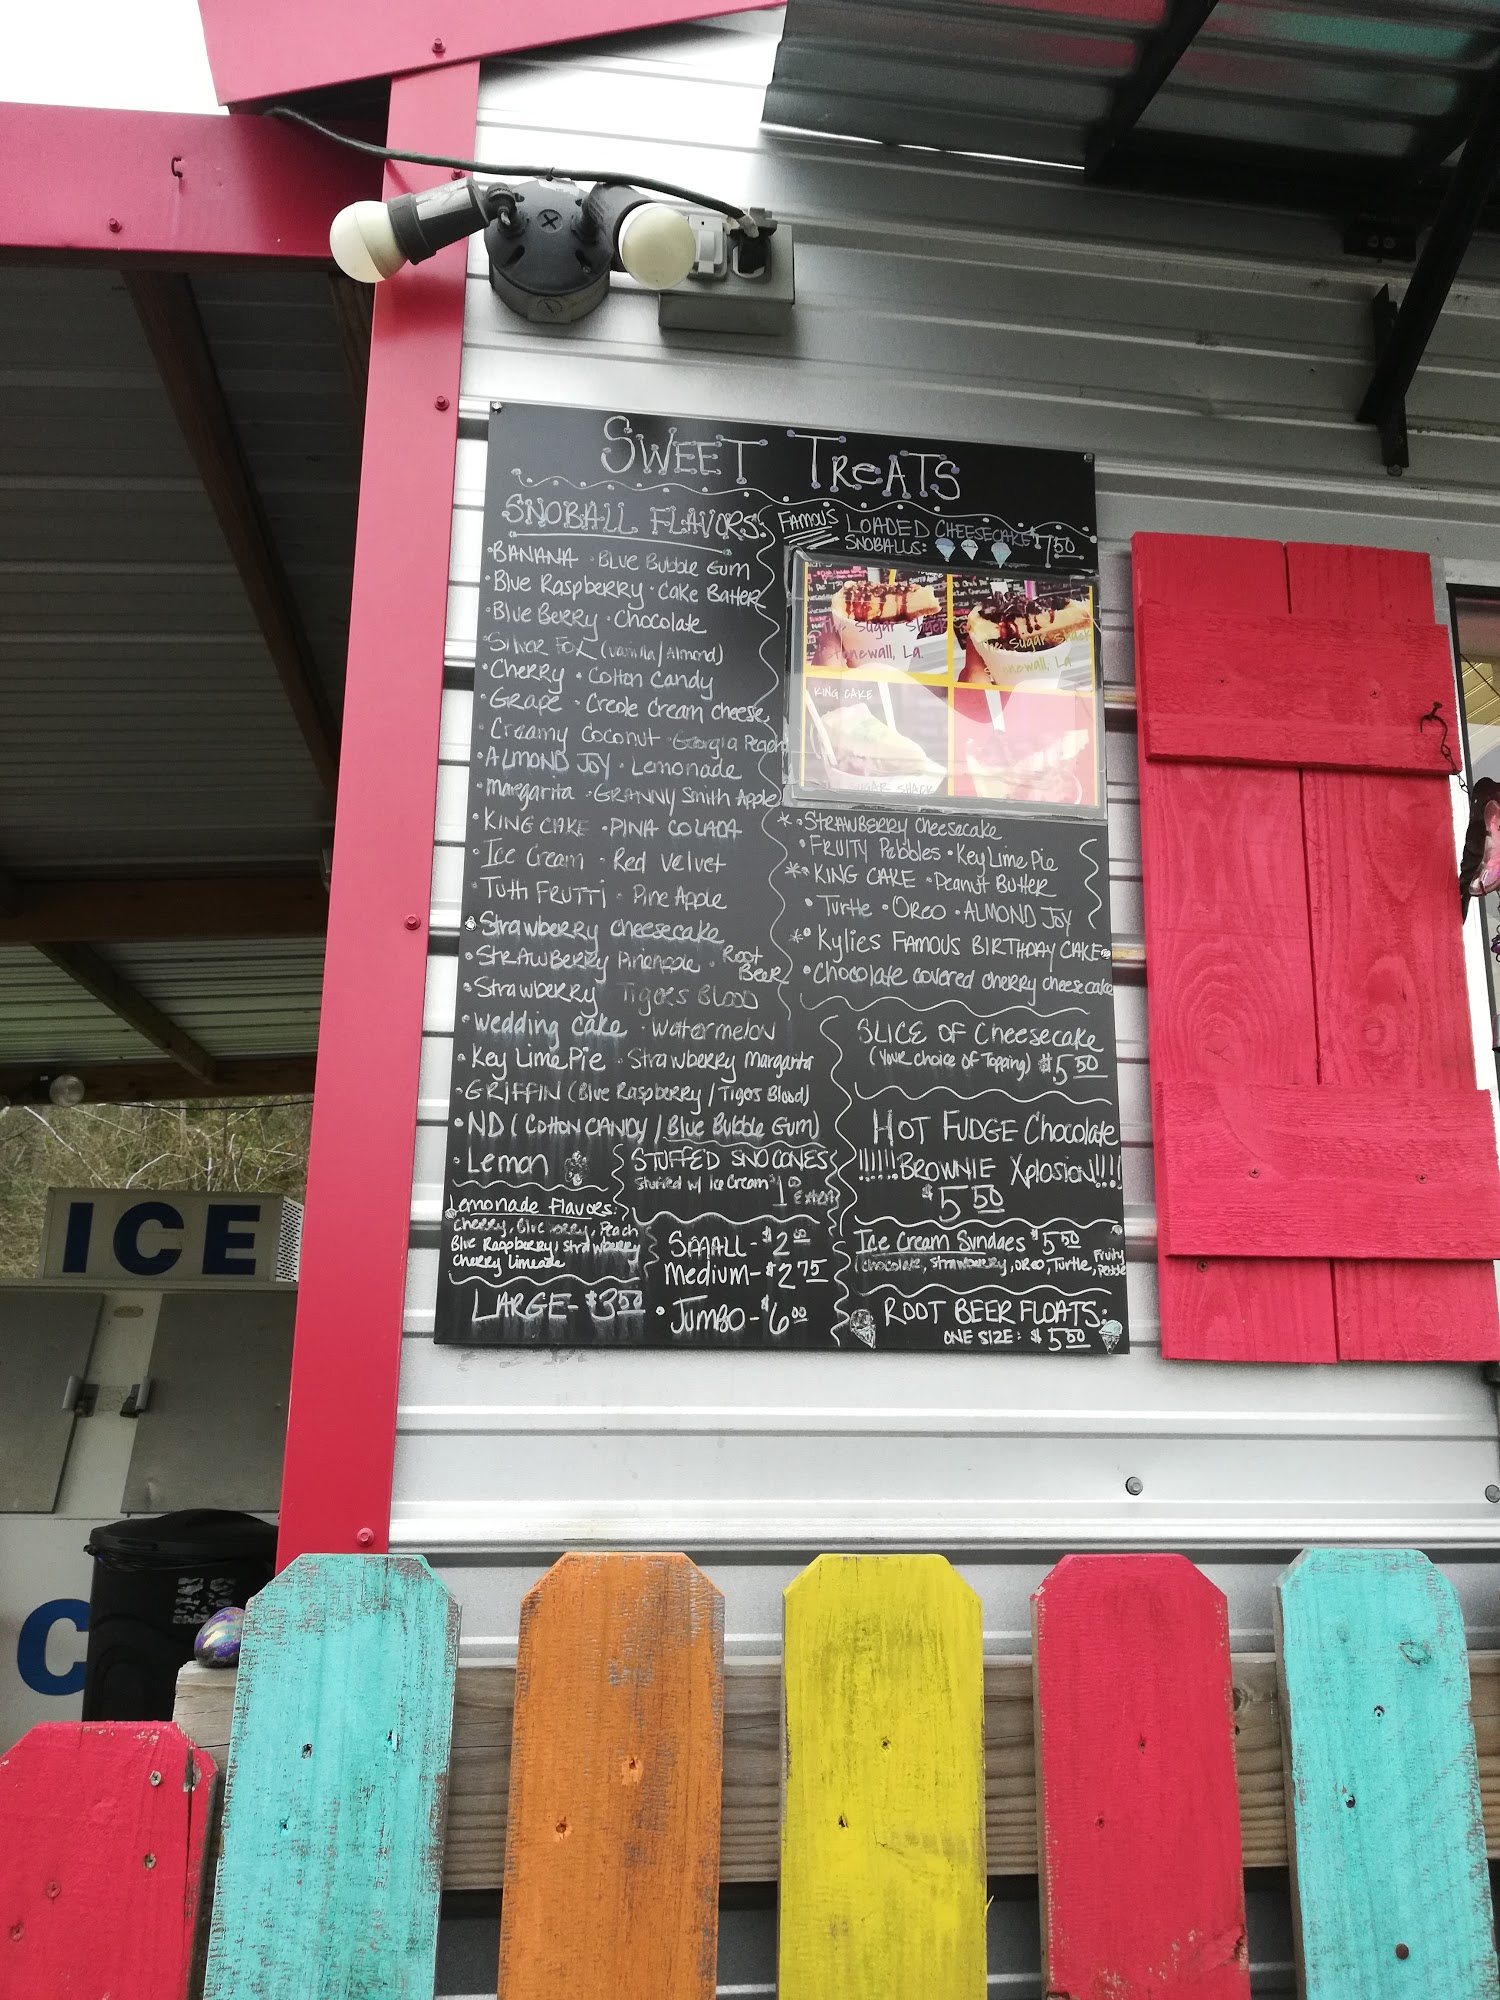 SWEET TREATS
SNOBALL FLAVORS:
• BANANA • Blue Bubble Gum
• Blue Raspberry • Cake Batter
• Blue Berry • Chocolate
• Silver Fox (Vanilla/Almond)
• Cherry • Cotton Candy
• Grape • Creole Cream Cheese
• Creamy Coconut • Georgia Peach
• ALMOND JOY • Lemonade
• margarita • GRANNY Smith Apple
• KING CAKE • PINA COLADA
• Ice Cream • Red velvet
• Tutti FRUTTI • Pine Apple
• Strawberry Cheesecake
• STRAWBERRY Pineapple • Root Beer
• Strawberry Tigers Blood
• wedding cake • watermelon
• Key Lime Pie • Strawberry Margarita
• GRIFFIN (Blue Raspberry / Tigers Blood)
• ND (COTTON CANDY / Blue Bubble Gum)
• Lemon
Lemonade Flavors:
Cherry, Blueberry, Peach
Blue Raspberry, Strawberry
Cherry Limeade
LARGE - $3.50
STUFFED SNOCONES
Stuffed w/ Ice Cream $1.00 Extra
SMALL - $2.00
Medium - $2.75
• JUMBO - $6.00
FAMOUS LOADED CHEESECAKE
SNOBALLS: 7.50
The Sugar Shack
Stonewall, La.
The Sugar Shack
Stonewall, La
KING CAKE
SUGAR SHACK
* • STRAWBERRY Cheesecake
• FRUITY Pebbles • Key Lime Pie
* • KING CAKE • Peanut Butter
• Turtle • OREO • ALMOND JOY
* • Kylies FAMOUS BIRTHDAY CAKE
• Chocolate covered cherry cheesecake
SLICE OF Cheesecake
(Your choice of Topping) $5.50
HOT FUDGE Chocolate
!!!!!!BROWNIE Xplosion!!!!
$5.50
Ice Cream Sundaes $5.50
Chocolate, Strawberry, OREO, Turtle, Fruity Pebble
ROOT BEER FLOATS:
ONE SIZE: $5.00
ICE
C